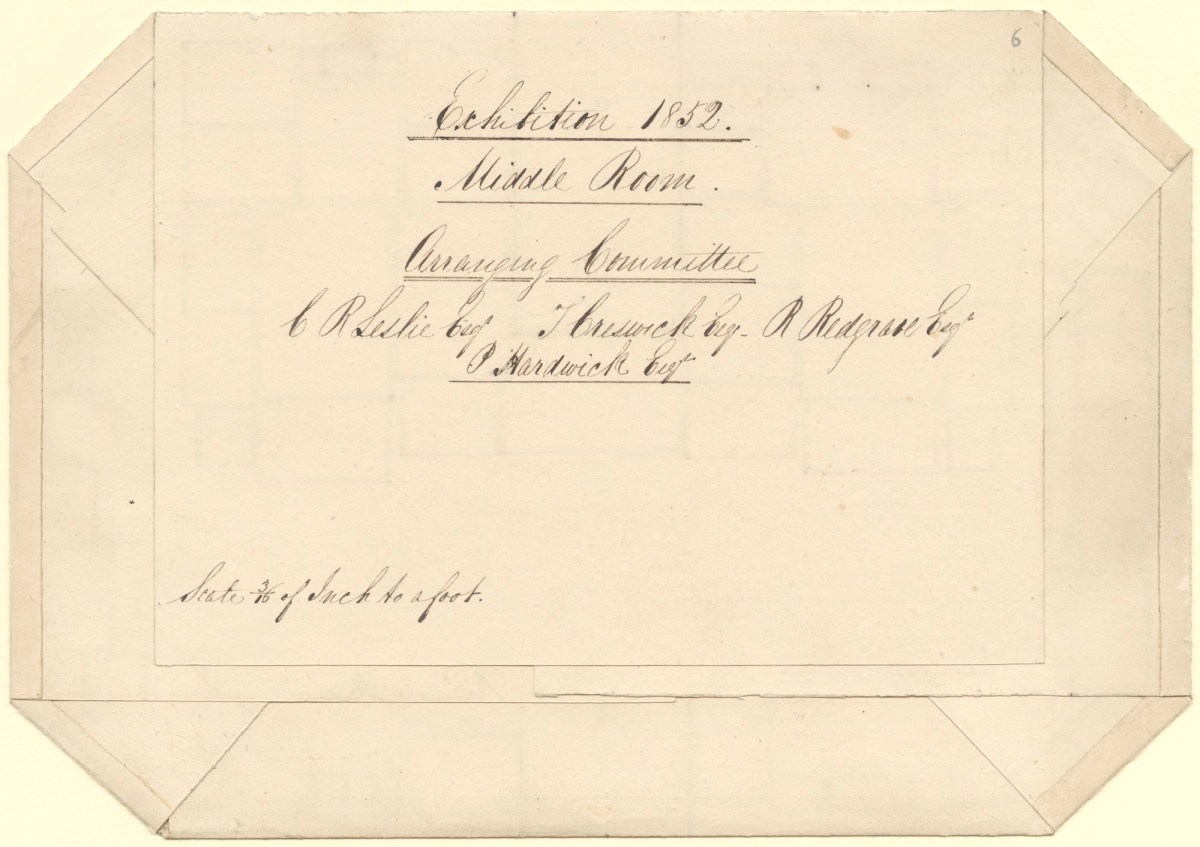 6
Exhibition 1852.
Middle Room.
Arranging Committee
C R Leslie Esqr T Creswick Esqr R Redgrave Esqr
P Hardwick Esqr
Scale 3/16 of Inch to a foot.